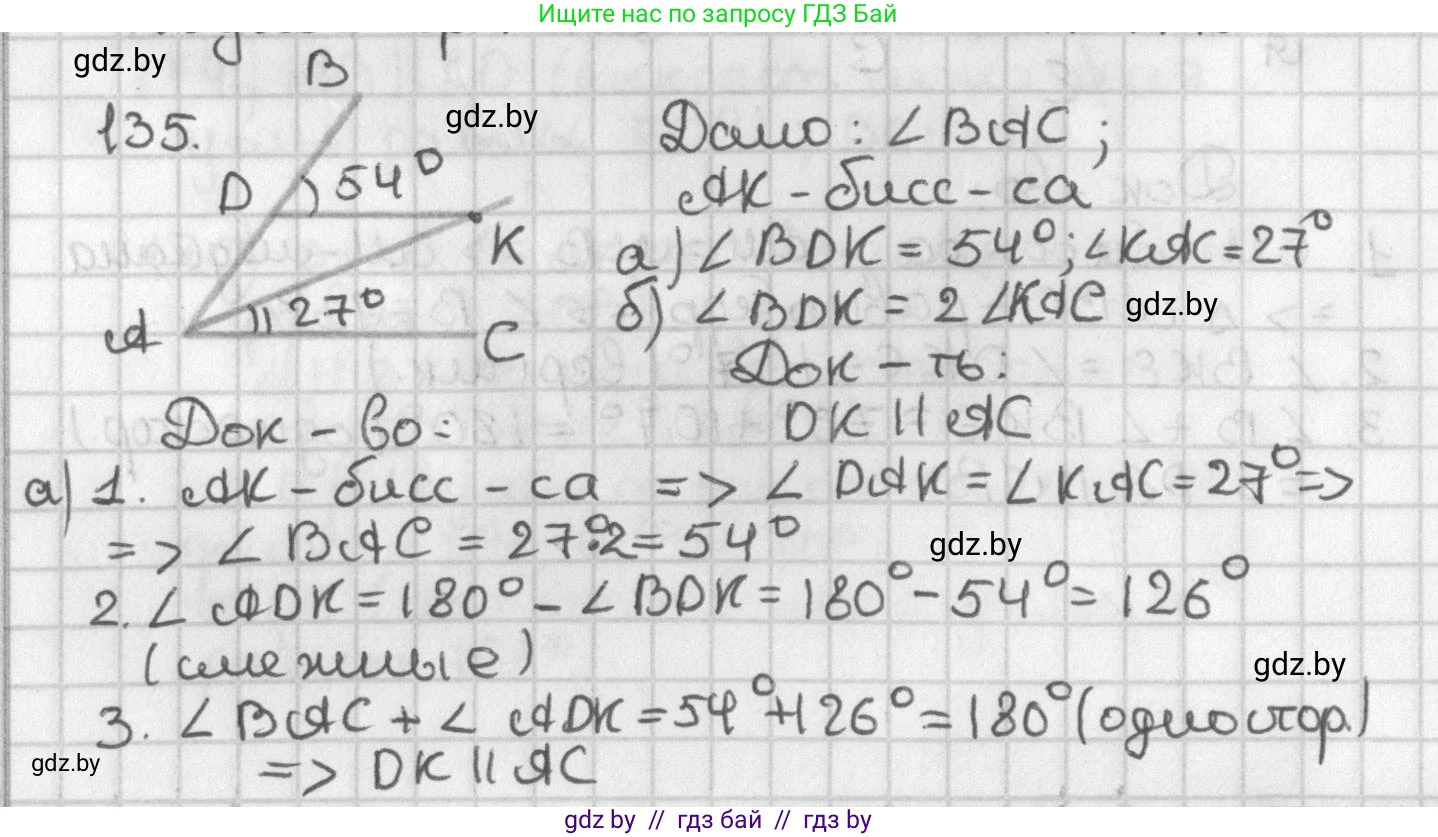 Ищите нас по запросу ГДЗ Бай
gdz.by
B
135.
gdz.by
Дано: ∠ BAC;
D
54°
AK - бисс-са
K
а) ∠ BDK = 54°; ∠KAC = 27°
27°
б) ∠ BDK = 2 ∠KAC
gdz.by
A
C
Док-ть:
DK || AC
Док-во:
а) 1. AK - бисс-са => ∠ DAK = ∠ KAC = 27° =>
=> ∠ BAC = 27°·2 = 54°
gdz.by
2. ∠ ADK = 180° - ∠ BDK = 180° - 54° = 126°
(смежные)
gdz.by
3. ∠ BAC + ∠ ADK = 54° + 126° = 180° (одностор.)
gdz.by
=> DK || AC
gdz by // гдз бай // gdz by